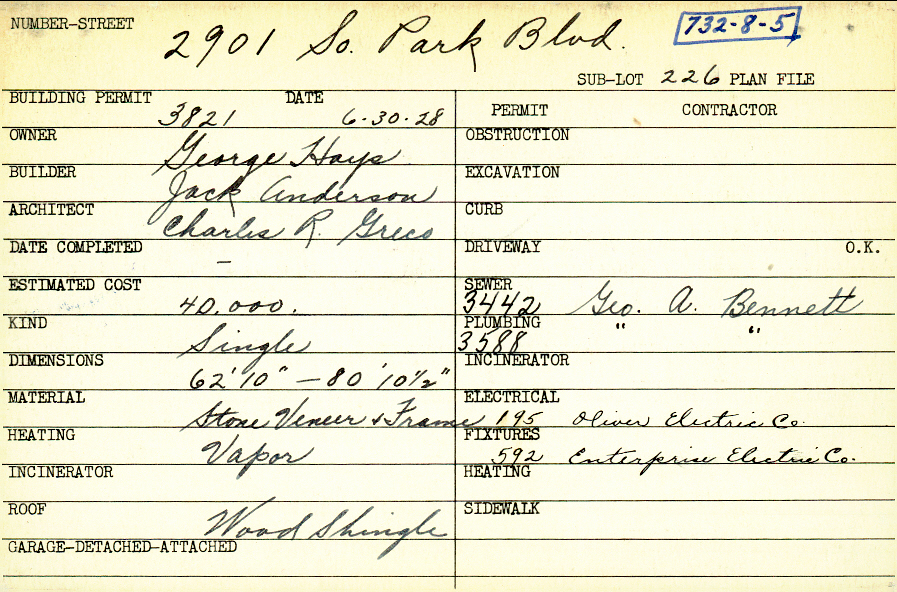 NUMBER-STREET
2901 So. Park Blvd.
732-8-5
SUB-LOT 226 PLAN FILE
BUILDING PERMIT DATE
3821 6-30-28
OWNER
George Hays
BUILDER
Jack Anderson
ARCHITECT
Charles R. Greco
DATE COMPLETED
–
ESTIMATED COST
40,000.
KIND
Single
DIMENSIONS
62'10" – 80'10½"
MATERIAL
Stone Veneer & Frame
HEATING
Vapor
INCINERATOR
ROOF
Wood Shingle
GARAGE-DETACHED-ATTACHED
PERMIT CONTRACTOR
OBSTRUCTION
EXCAVATION
CURB
DRIVEWAY O.K.
SEWER
3442 Geo. A. Bennett
PLUMBING
3588 " "
INCINERATOR
ELECTRICAL
195 Oliver Electric Co.
FIXTURES
592 Enterprise Electric Co.
HEATING
SIDEWALK